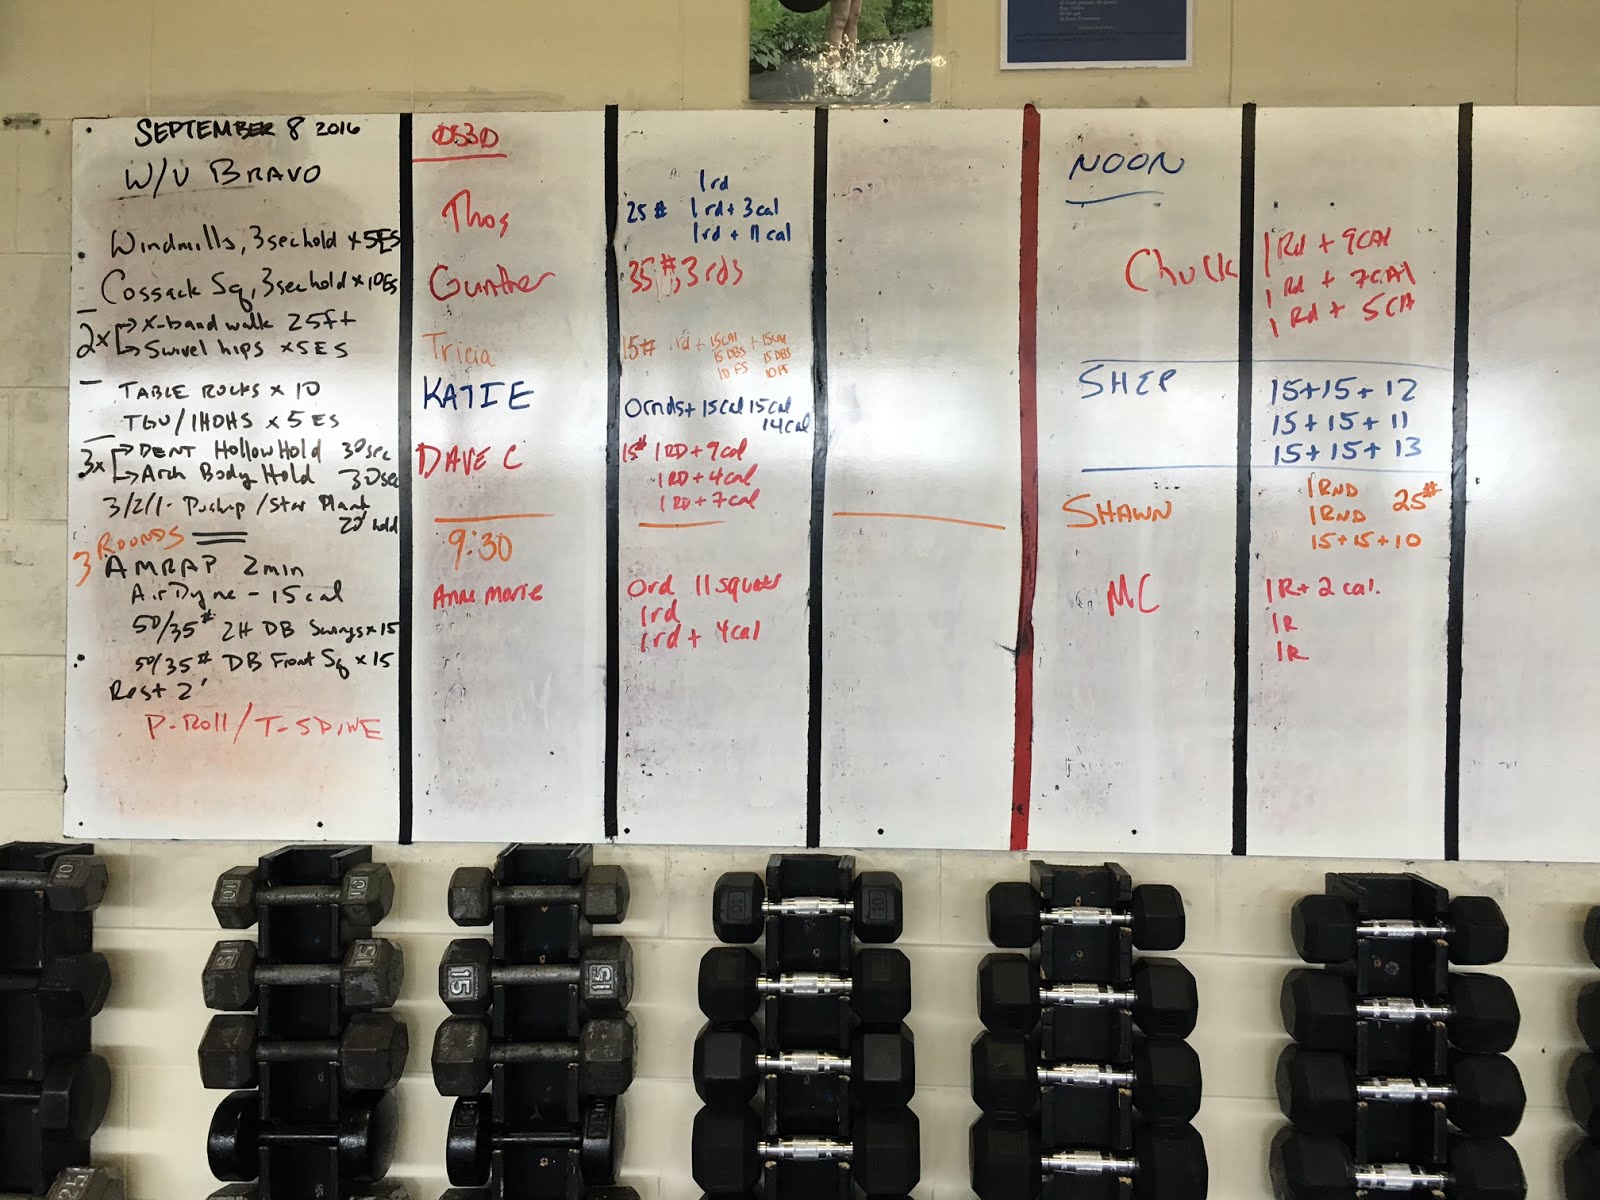 SEPTEMBER 8 2016
W/U BRAVO
Windmills, 3 sec hold x 5ES
Cossack Sq, 3 sec hold x 10ES
2x
X-band walk 25ft
Swivel hips x 5ES
TABLE ROCKS x 10
TGU/1HOHS x 5 ES
3x
DENT Hollow Hold 30sec
Arch Body Hold 30sec
3/2/1- Pushup/Star Plank
20' hold
3 ROUNDS
AMRAP 2min
AirDyne - 15 cal
50/35# 2H DB Swings x 15
50/35# DB Front Sq x 15
Rest 2'
P-Roll/T-SPINE
0530
Thos
1rd
25# 1rd + 3 cal
1rd + 11 cal
Gunther
35#, 3 rds
Tricia
15# 1rd + 15CAl + 15CAl
15 DBS 15 DBS
10 FS 10 FS
KATIE
0rnds + 15cal 15cal
14cal
DAVE C
15# 1RD + 9cal
1RD + 4cal
1RD + 7cal
9:30
Anne marie
0rd 11 squats
1rd
1rd + 4cal
NOON
Chuck
1Rd + 9CAl
1Rd + 7CAl
1Rd + 5CA
SHEP
15+15+12
15+15+11
15+15+13
SHAWN
1RND
1RND 25#
15+15+10
MC
1R + 2 cal.
1R
1R
10
10
10
15
15
15
15
10
25